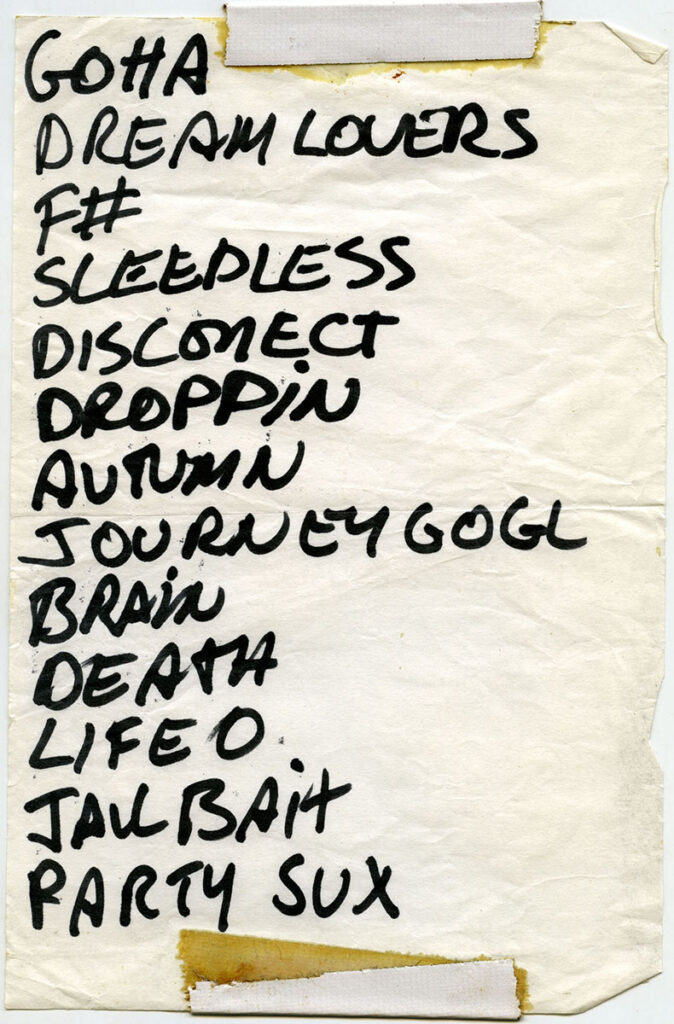 GOHA
DREAM LOVERS
F#
SLEEDLESS
DISCONECT
DROPPIN
AUTUMN
JOURNEY GOGL
BRAIN
DEATH
LIFE O
JAIL BAIT
PARTY SUX